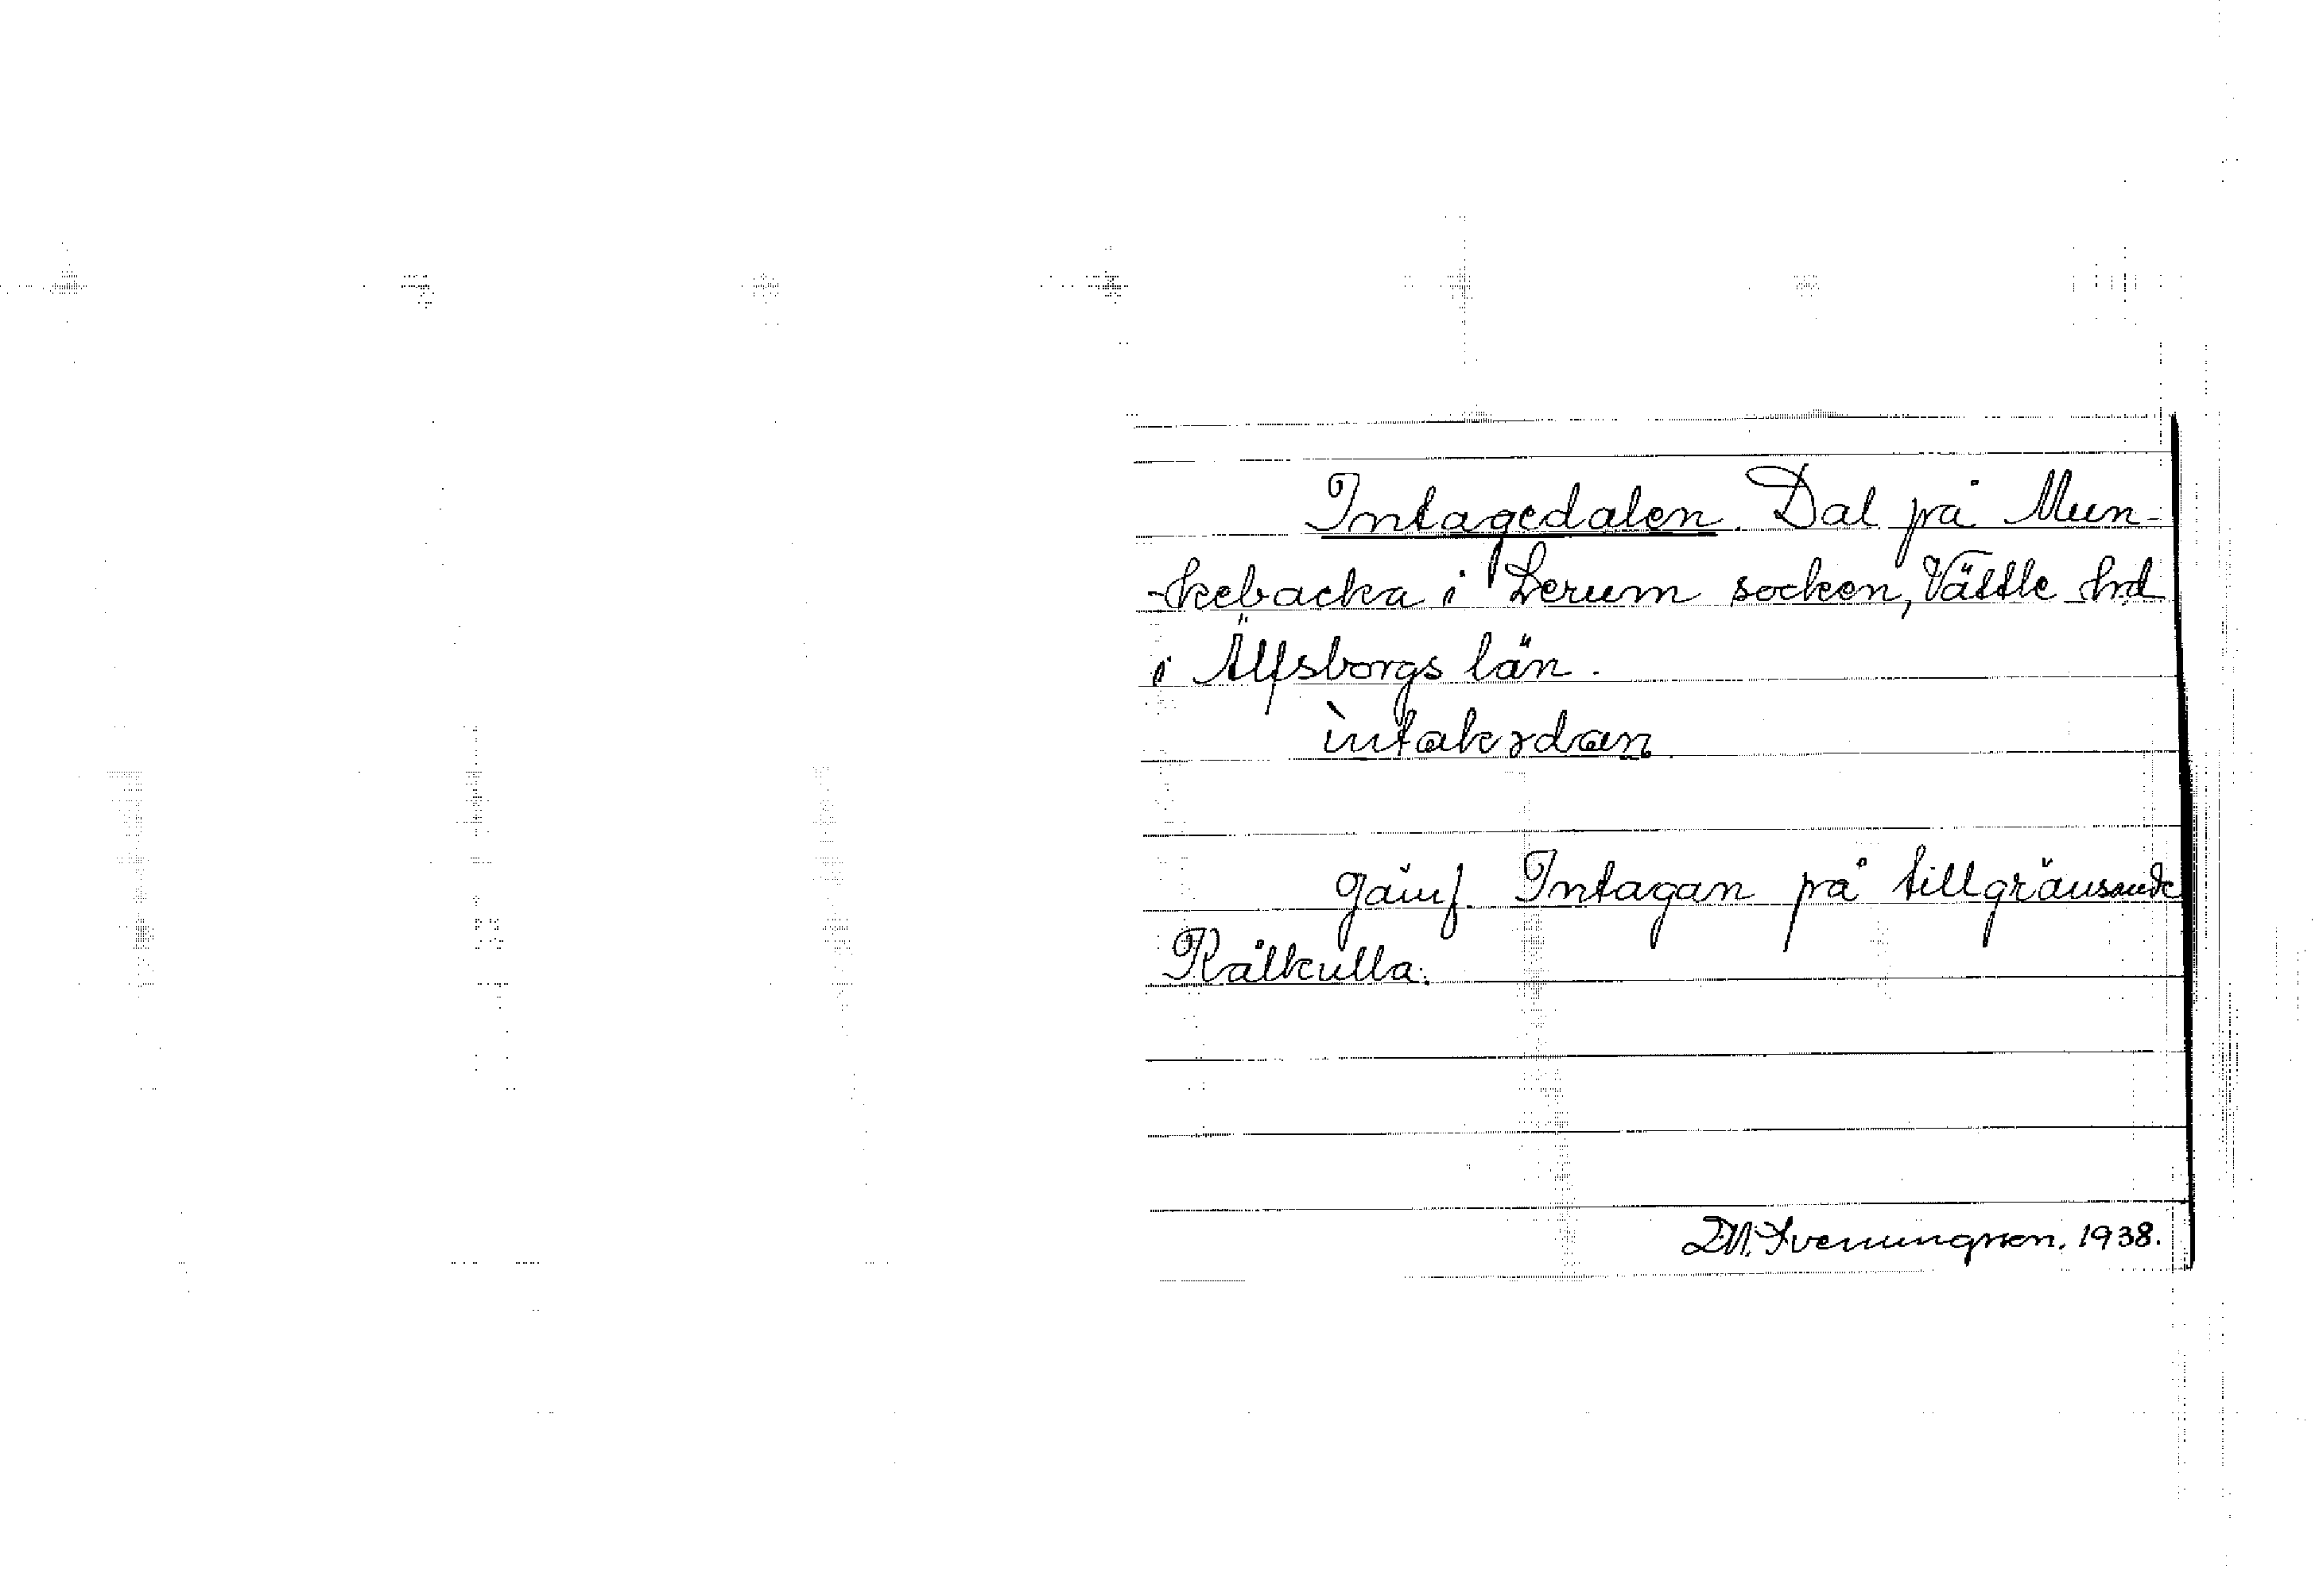 Intagedalen. Dal på Mun-
-kebacka i Lerum socken, Vättle hd
i Älfsborgs län.
ìntakədan
Jämf. Intagan på tillgränsande
Rålkulla.
D.N. Svenningson. 1938.